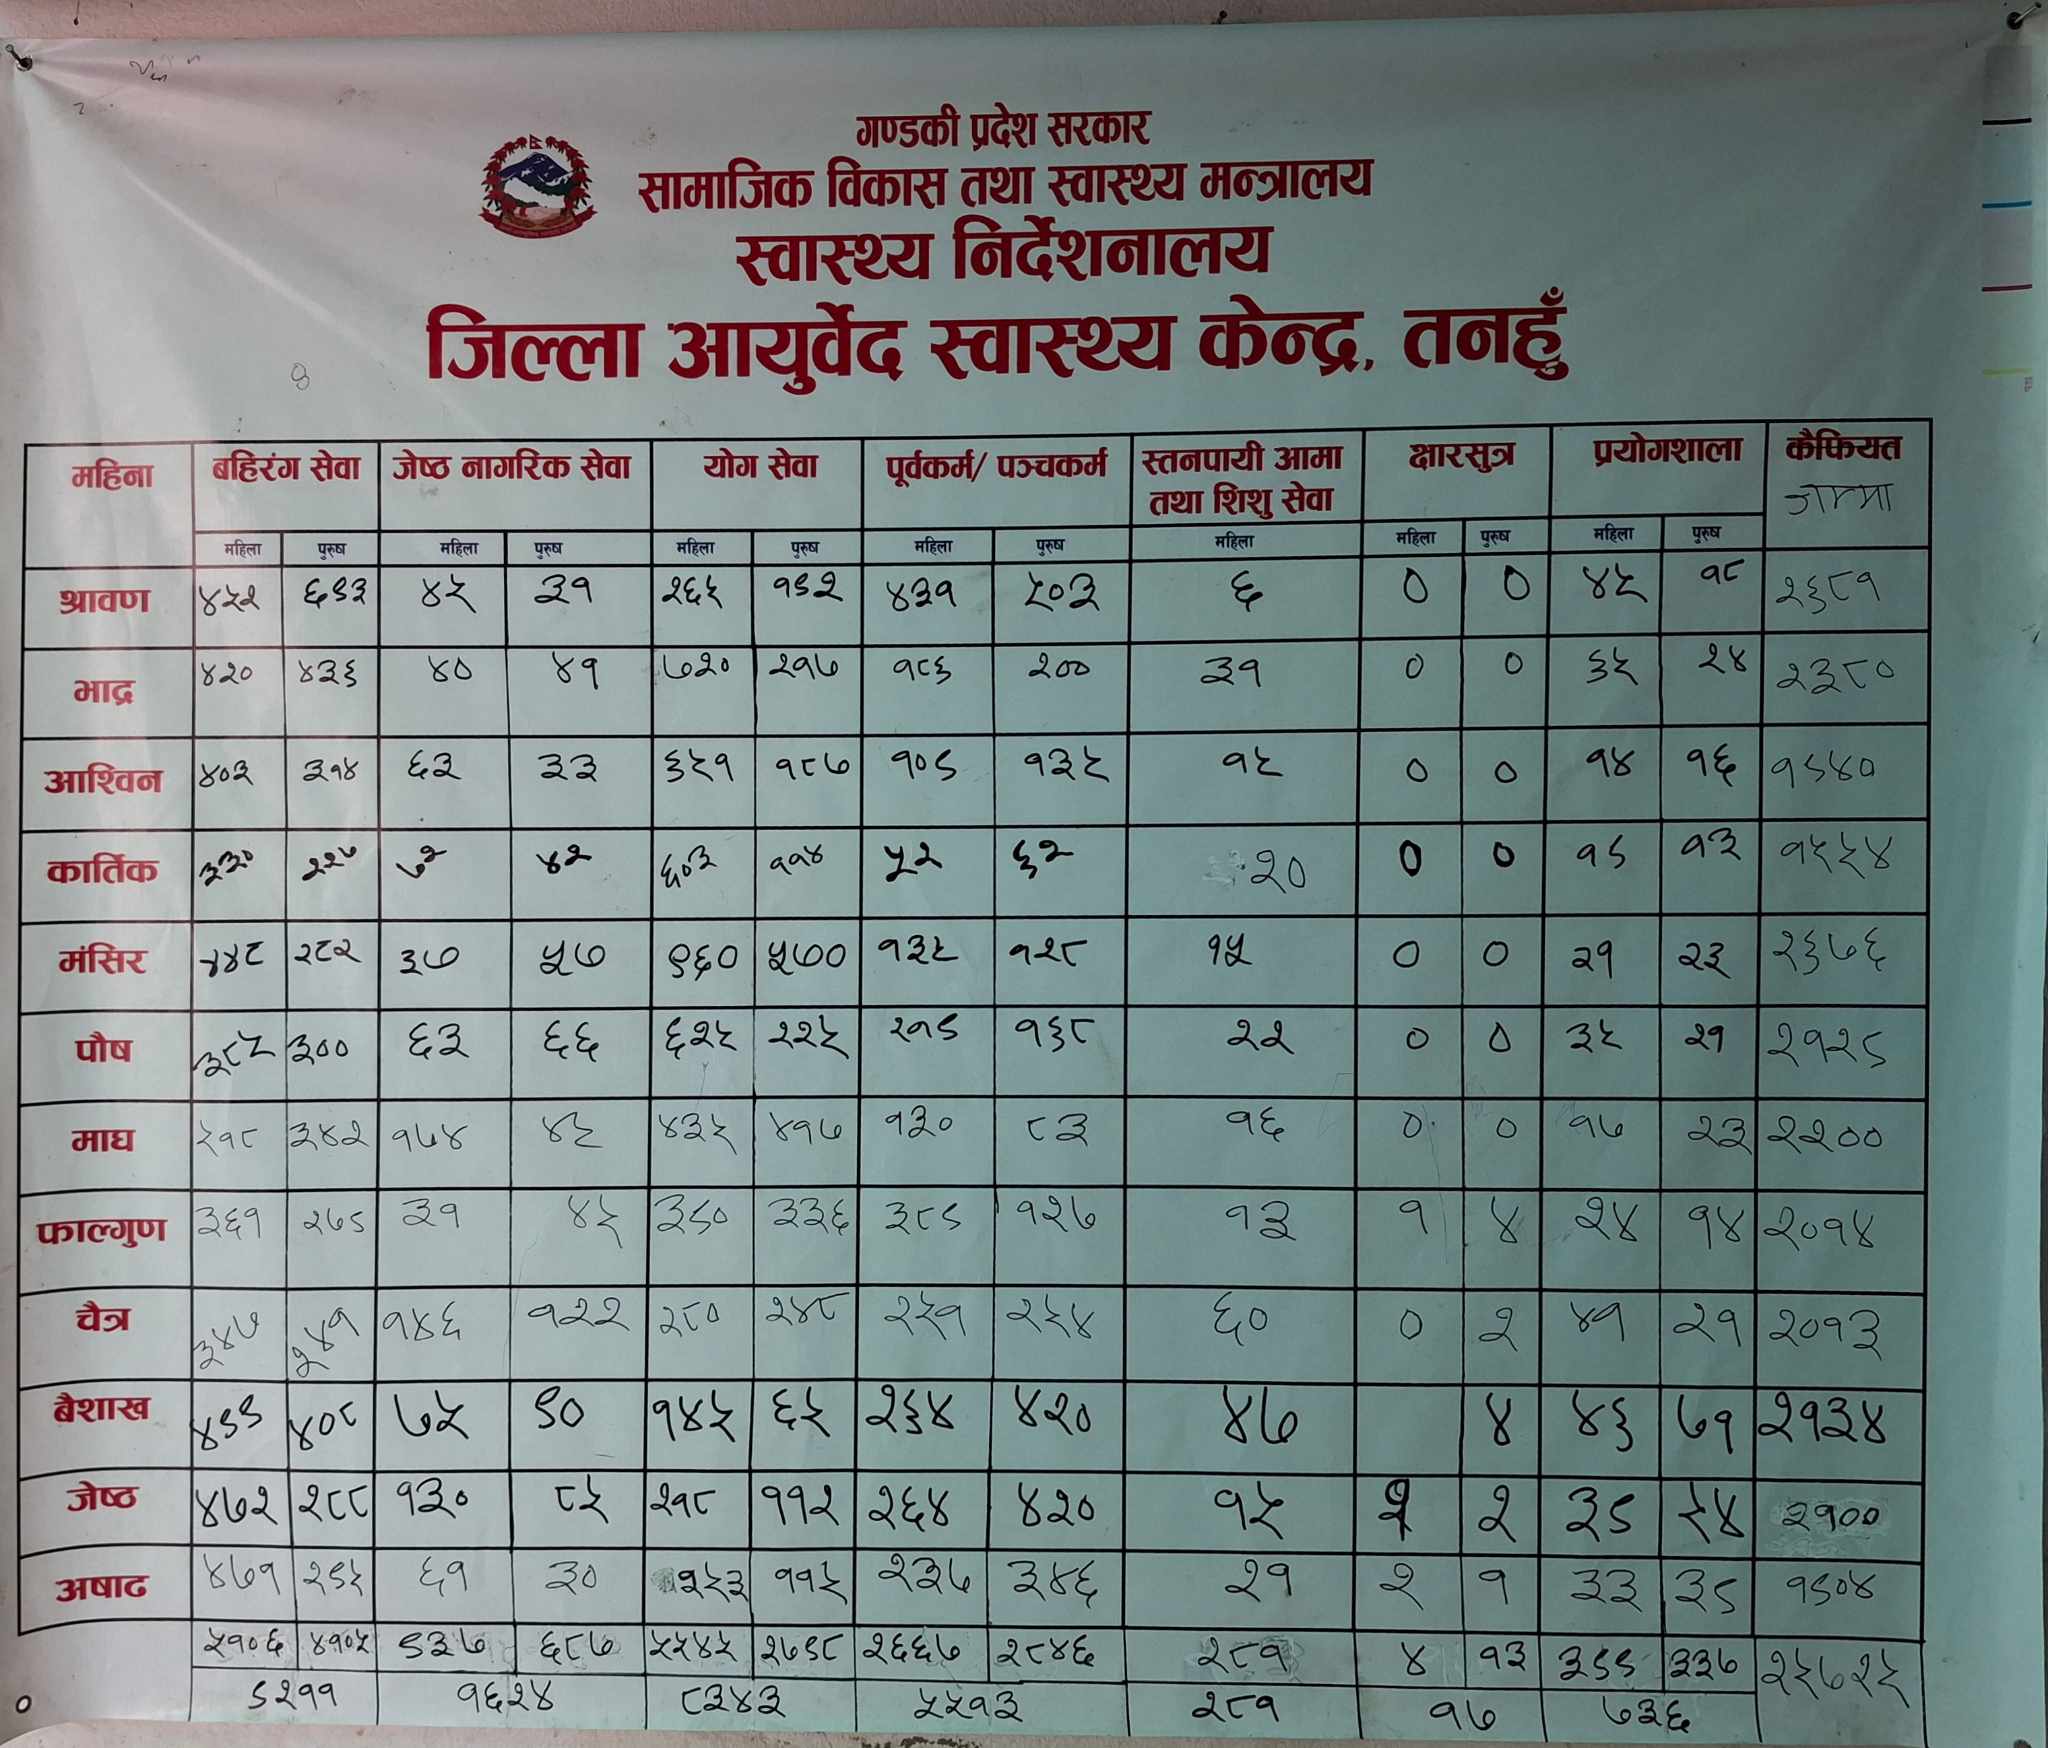 गण्डकी प्रदेश सरकार
सामाजिक विकास तथा स्वास्थ्य मन्त्रालय
स्वास्थ्य निर्देशनालय
जिल्ला आयुर्वेद स्वास्थ्य केन्द्र, तनहुँ
महिना बहिरंग सेवा जेष्ठ नागरिक सेवा योग सेवा पूर्वकर्म/ पञ्चकर्म स्तनपायी आमा तथा शिशु सेवा क्षारसुत्र प्रयोगशाला कैफियत जम्मा
महिला पुरुष महिला पुरुष महिला पुरुष महिला पुरुष महिला महिला पुरुष महिला पुरुष
श्रावण ४५२ ६९३ ४५ ३१ २६५ १९२ ४३१ ५०३ ६ ० ० ४५ १८ २६८१
भाद्र ४२० ४३६ ४० ४१ ७२० २१७ १८६ २०० ३१ ० ० ६५ २४ २३८०
आश्विन ४०३ ३१४ ६३ ३३ ६५१ १८७ १०९ १३५ १५ ० ० १४ १६ १९४०
कार्तिक ३३० २२७ ७२ ४२ ६०३ ११४ ५२ ६२ २० ० ० १९ १३ १५५४
मंसिर ४४८ २८२ ३७ ५७ ९६० ५७० १३५ १२८ १५ ० ० २१ २३ २६७६
पौष ३८५ ३०० ६३ ६६ ६२५ २२५ २१९ १६८ २२ ० ० ३५ २१ २१२९
माघ ५१८ ३४२ १७४ ४५ ४३५ ४१७ १३० ८३ १६ ० ० १७ २३ २२००
फाल्गुण ३६१ २७९ ३१ ४५ ३९० ३३६ ३८९ १२७ १३ १ ४ २४ १४ २०१४
चैत्र ३४७ २४१ १४६ १२२ २८० २४८ २५१ २५४ ६० ० २ ४१ २१ २०१३
बैशाख ४९९ ४०८ ७५ ९० १४५ ६५ २६४ ४२० ४७ ४ ४६ ७१ २१३४
जेष्ठ ४७२ २८८ १३० ८५ २१८ ११२ २६४ ४२० १५ २ ३९ ५४ २१००
अषाढ ४७१ २९५ ६१ ३० २५३ ११५ २३७ ३४६ २१ २ १ ३३ ३९ १९०४
५१०६ ४१०५ ९३७ ६८७ ५५४५ २७९८ २६६७ २८४६ २८१ ४ १३ ३९९ ३३७ २५७२५
९२११ १६२४ ८३४३ ५५१३ २८१ १७ ७३६